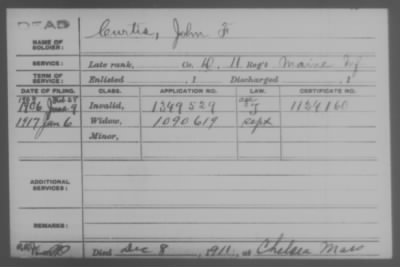 DEAD
Curtis, John F
NAME OF SOLDIER:
SERVICE: Late rank, Co. D, 11 Reg't Maine Inf
TERM OF SERVICE: Enlisted , 1 Discharged , 1
DATE OF FILING. CLASS. APPLICATION NO. LAW. CERTIFICATE NO.
1906 June 9 Invalid, 1349529 1134160
1917 Jan 6 Widow, 1090619 Sept
Minor,
ADDITIONAL SERVICES:
REMARKS:
Died Dec 8, 1911, at Chelsea Mass